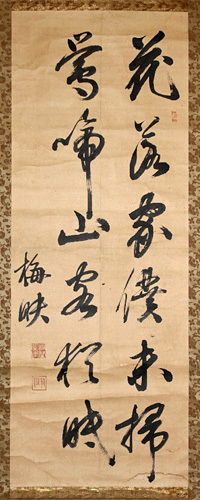 花落家僕未掃
鶯啼山客猶眠
梅映